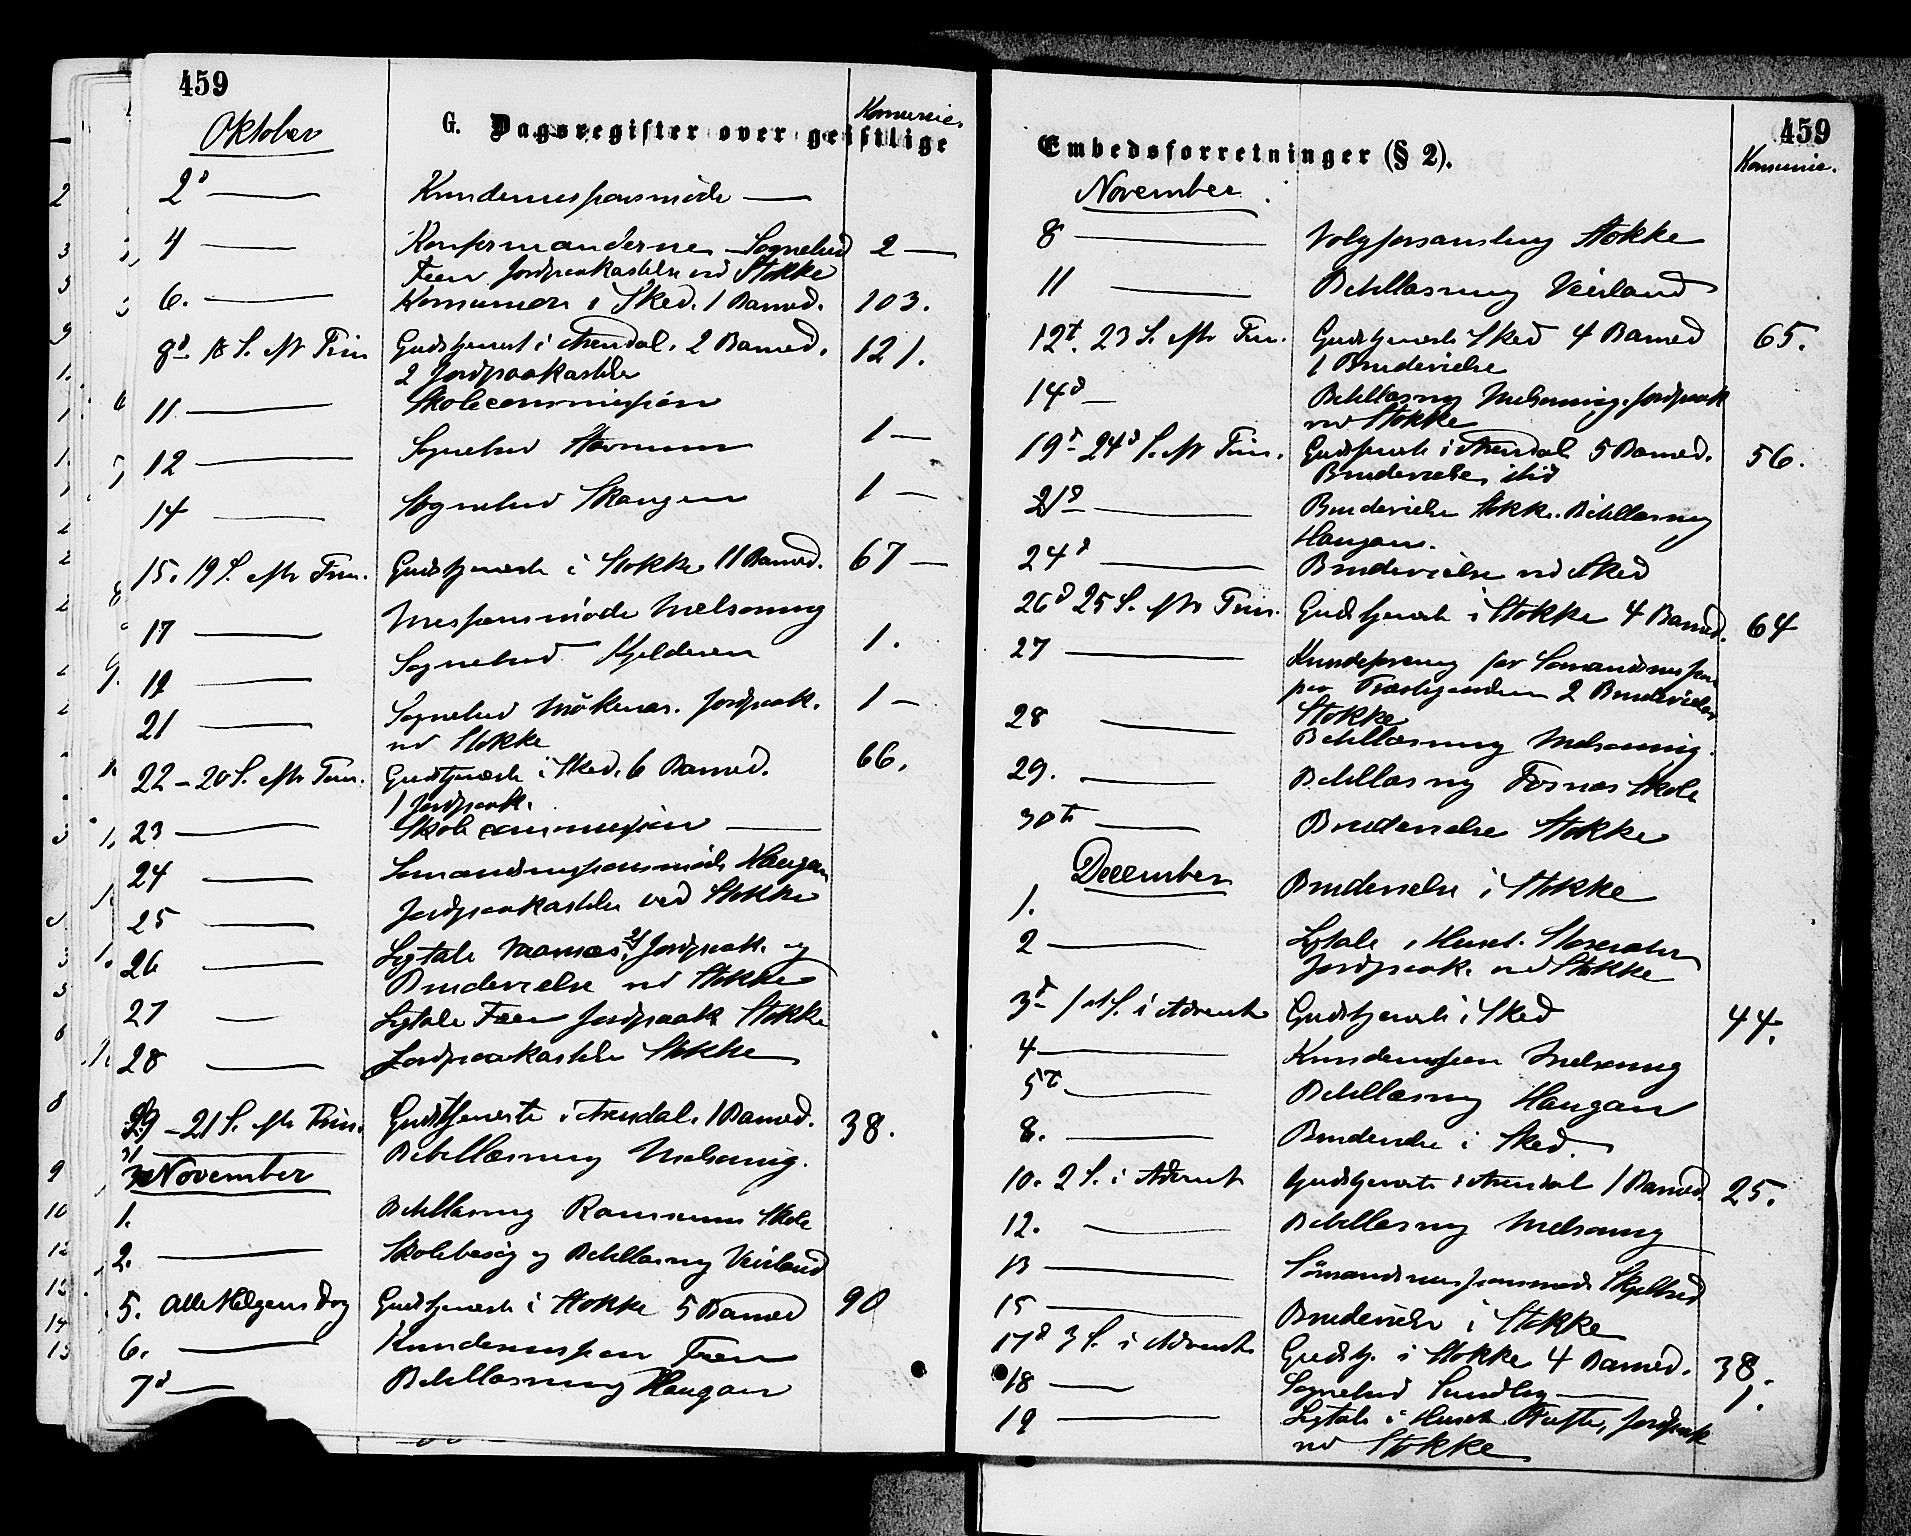 459
G. Dagsregister over geistlige
Oktober
Komunie.
2d Kvindemisionsmöde
4 Konfirmanderne Sognebud 2
Fæen Jordpaakastelse ved Stokke
6. Komunion i Sked. 1 Barned. 103.
8d 18 S. eftr Trin Gudstjenest i Arendal. 2 Barned. 121.
2 Jordpaakastelse
11 Skolecommission
12 Sognebud 1
14 Sognebud Skaugen 1
15. 19 S. eftr Trin. Gudstjeneste i Stokke 11 Barned. 67
17 Misionsmöde Melsomvig
19 Sognebud 1.
21 Sognebud Jordpaak. 1
ved Stokke
22 - 20 S. eftr Trin. Gudstjeneste i Sked. 6 Barned. 66.
1 Jordpaak.
23 Skolecommission
24 Sömandsmisionsmöde Haugan
25 Jordpaakastelse ved Stokke
26 Ligtale Jordpaak. og
Brudevielse ved Stokke
27 Ligtale Fæen Jordpaak Stokke
28 Jordpaakastelse Stokke
29 - 21 S. eftr Trin. Gudstjeneste i Arendal. 1 Barned. 38.
31 Bibellæsning Melsomvig.
November
1. Bibellæsning Ramsum Skole
2. Skolebesög og Bibellæsning Veierland
5. Alle Helgens Dag Gudstjeneste i Stokke 5 Barned 90
6. Kvindemision Fæen
7d Bibellæsning Haugan
459
Embedsforretninger (§ 2).
Komunie.
November
8 Valgforsamling Stokke
11 Bibellæsning Veierland
12t. 23 S. eftr Trin. Gudstjeneste Sked 4 Barned 65.
1 Brudevielse
14d Bibellæsning Melsomvig. Jordpaak
ved Stokke
19d 24d S. eftr Trin. Gudstjeneste i Arendal 5 Barned. 56.
Brudevielse
21d Brudevielse Stokke. Bibellæsning
Haugan.
24d Brudevielse ved Sked
26d 25 S. eftr Trin. Gudstjeneste i Stokke 4 Barned. 64
27 Kvindeforening for Sömandsmision
2 Brudevielser
Stokke
28 Bibellæsning Melsomvig.
29. Bibellæsning Fossnæs Skole
30te Brudevielse Stokke
December
1. Brudevielse i Stokke
2 Ligtale i Huset.
Jordpaak. ved Stokke
3d 1st S. i Advent Gudstjeneste i Sked 44.
4 Kvindemision Melsomvig
5t Bibellæsning Haugan
8. Brudevielse i Sked.
10. 2 S. i Advent Gudstjeneste i Arendal 1 Barned. 25.
12. Bibellæsning Melsomvig
13 Sömandsmisionsmöde Skjelbred
15 Brudevielse i Stokke
17d 3 S. i Advent Gudstj. i Stokke 4 Barned. 38.
18 Sognebud Sundby 1.
19 Ligtale i Huset Jordpaak
ved Stokke